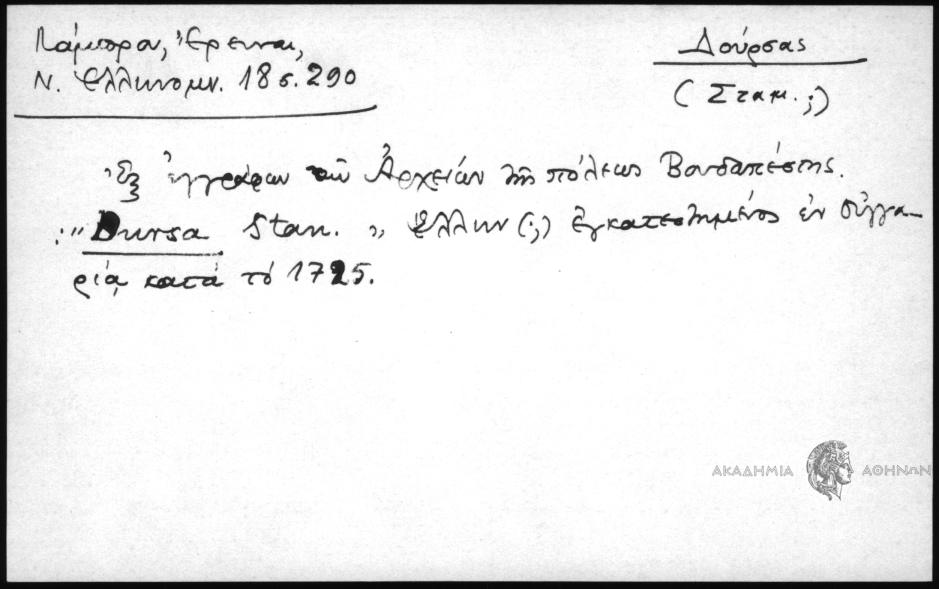 Λάμπρου, Ἔρευναι,
Ν. Ἑλληνομν. 18 σ. 290
Δούρσας
(Σταμ. ;)
Ἐξ ἐγγράφων τῶν Ἀρχείων τῆς πόλεως Βουδαπέστης.
: "Dursa Stan." Ἕλλην (;) ἐγκατεστημένος ἐν Οὑγγα-
ρίᾳ κατά τό 1725.
ΑΚΑΔΗΜΙΑ ΑΘΗΝΩΝ